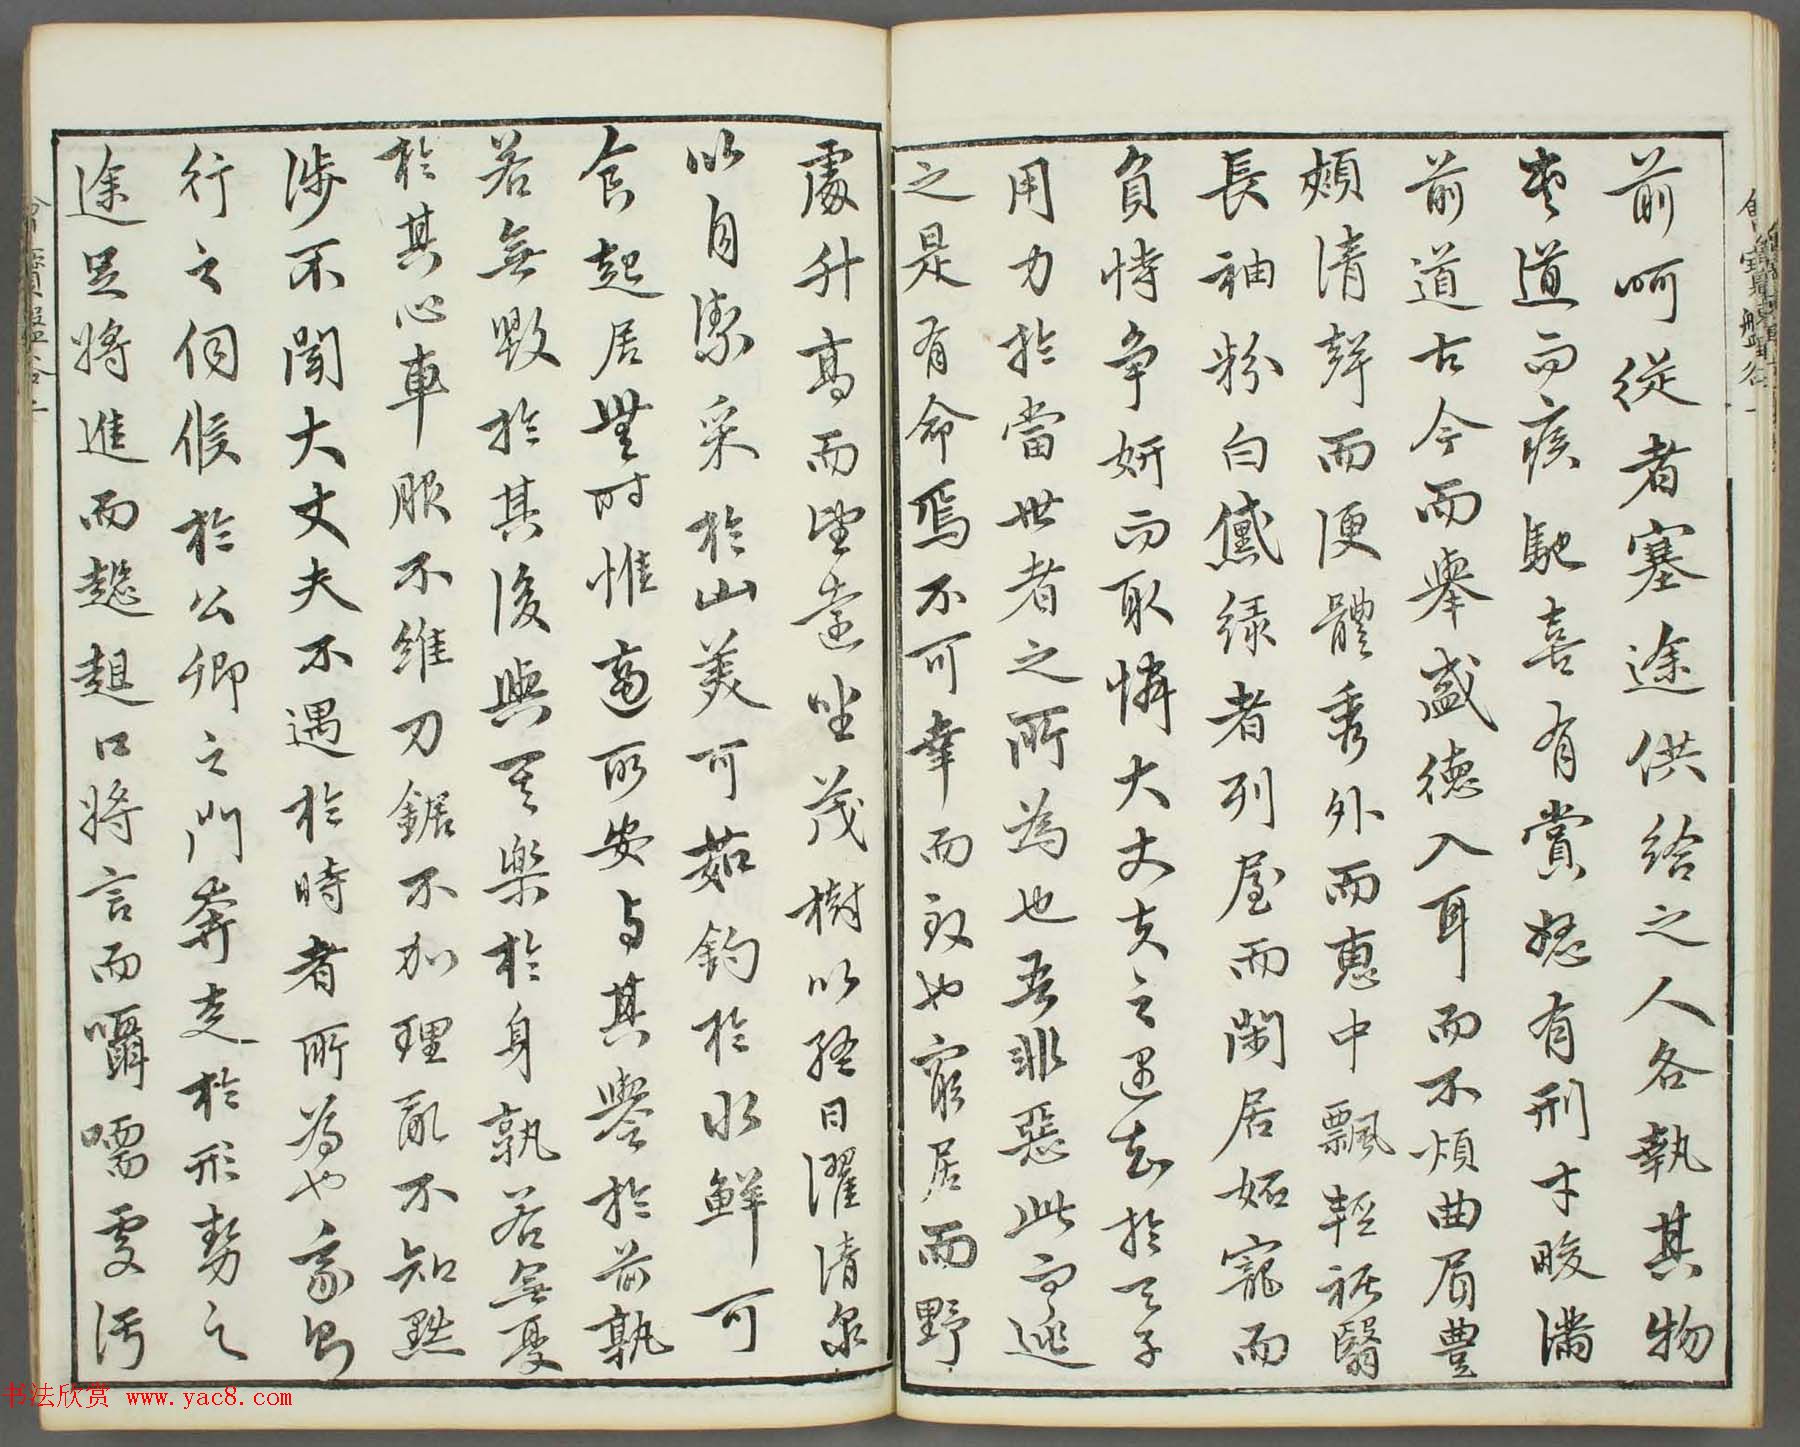 前呵從者塞途供給之人各執其物
夾道而疾馳喜有賞怒有刑才畯滿
前道古今而舉盛德入耳而不煩曲眉豐
頰清聲而便體秀外而惠中飄輕裾翳
長袖粉白黛綠者列屋而閑居妬寵而
負恃爭妍而取憐大丈夫之遇知於天子
用力於當世者之所為也吾非惡此而逃
之是有命焉不可幸而致也窮居而野
處升高而望遠坐茂樹以終日濯清泉
以自潔采於山美可茹釣於水鮮可
食起居無時惟適所安与其譽於前孰
若無毀於其後與其樂於身孰若無憂
於其心車服不維刀鋸不加理亂不知黜
陟不聞大丈夫不遇於時者所為也我則
行之伺候於公卿之門奔走於形勢之
途足將進而趑趄口將言而囁嚅處污
书法欣赏 www.yac8.com